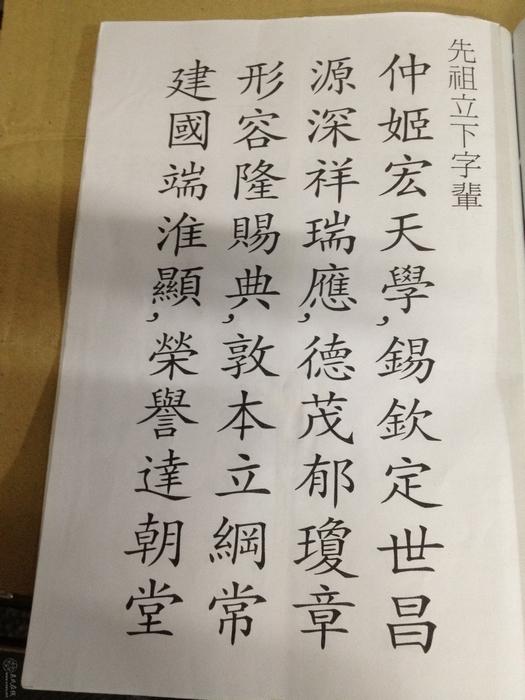 先祖立下字輩
仲姬宏天學,錫欽定世昌
源深祥瑞應,德茂郁瓊章
形容隆賜典,敦本立綱常
建國端淮顯,榮譽達朝堂